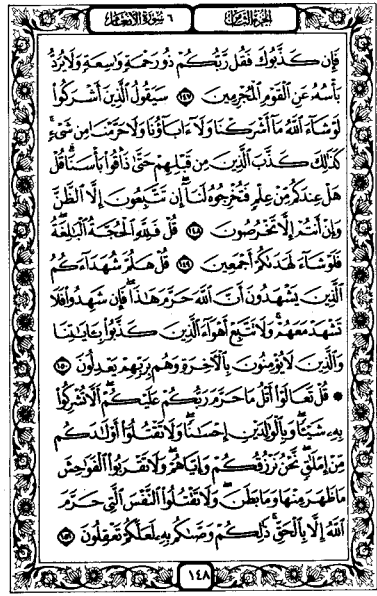 الجزء الثامن ٦ سورة الأنعام
فَإِن كَذَّبُوكَ فَقُل رَّبُّكُمْ ذُو رَحْمَةٍ وَٰسِعَةٍ وَلَا يُرَدُّ
بَأْسُهُۥ عَنِ ٱلْقَوْمِ ٱلْمُجْرِمِينَ ١٤٧ سَيَقُولُ ٱلَّذِينَ أَشْرَكُوا۟
لَوْ شَآءَ ٱللَّهُ مَآ أَشْرَكْنَا وَلَآ ءَابَآؤُنَا وَلَا حَرَّمْنَا مِن شَىْءٍ ۚ
كَذَٰلِكَ كَذَّبَ ٱلَّذِينَ مِن قَبْلِهِمْ حَتَّىٰ ذَاقُوا۟ بَأْسَنَا ۗ قُلْ
هَلْ عِندَكُم مِّنْ عِلْمٍ فَتُخْرِجُوهُ لَنَآ ۖ إِن تَتَّبِعُونَ إِلَّا ٱلظَّنَّ
وَإِنْ أَنتُمْ إِلَّا تَخْرُصُونَ ١٤٨ قُلْ فَلِلَّهِ ٱلْحُجَّةُ ٱلْبَٰلِغَةُ ۖ
فَلَوْ شَآءَ لَهَدَىٰكُمْ أَجْمَعِينَ ١٤٩ قُلْ هَلُمَّ شُهَدَآءَكُمُ
ٱلَّذِينَ يَشْهَدُونَ أَنَّ ٱللَّهَ حَرَّمَ هَٰذَا ۖ فَإِن شَهِدُوا۟ فَلَا
تَشْهَدْ مَعَهُمْ ۚ وَلَا تَتَّبِعْ أَهْوَآءَ ٱلَّذِينَ كَذَّبُوا۟ بِـَٔايَٰتِنَا
وَٱلَّذِينَ لَا يُؤْمِنُونَ بِٱلْـَٔاخِرَةِ وَهُم بِرَبِّهِمْ يَعْدِلُونَ ١٥٠
۞ قُلْ تَعَالَوْا۟ أَتْلُ مَا حَرَّمَ رَبُّكُمْ عَلَيْكُمْ ۖ أَلَّا تُشْرِكُوا۟
بِهِۦ شَيْـًٔا ۖ وَبِٱلْوَٰلِدَيْنِ إِحْسَٰنًا ۖ وَلَا تَقْتُلُوٓا۟ أَوْلَٰدَكُم
مِّنْ إِمْلَٰقٍ ۖ نَّحْنُ نَرْزُقُكُمْ وَإِيَّاهُمْ ۖ وَلَا تَقْرَبُوا۟ ٱلْفَوَٰحِشَ
مَا ظَهَرَ مِنْهَا وَمَا بَطَنَ ۖ وَلَا تَقْتُلُوا۟ ٱلنَّفْسَ ٱلَّتِى حَرَّمَ
ٱللَّهُ إِلَّا بِٱلْحَقِّ ۚ ذَٰلِكُمْ وَصَّىٰكُم بِهِۦ لَعَلَّكُمْ تَعْقِلُونَ ١٥١
١٤٨